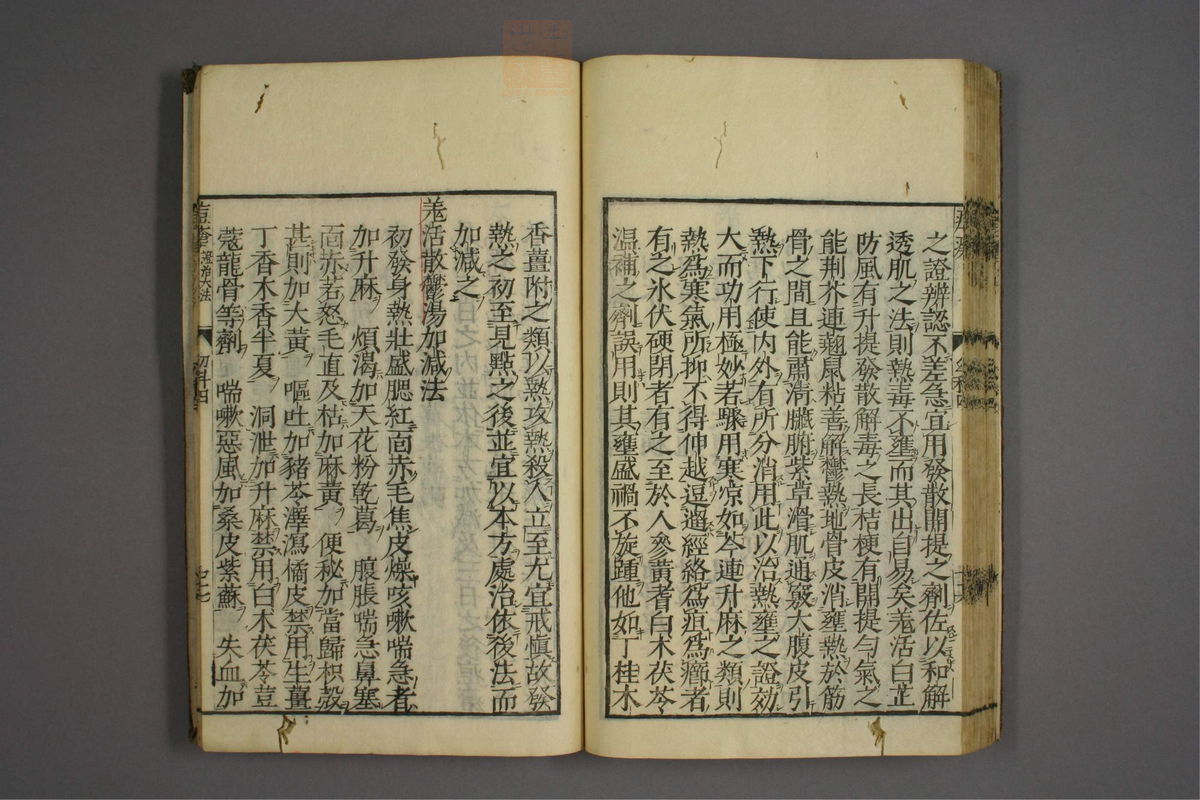 之證辨認不差急宜用發散開提之劑佐以和解
透肌之法則熱毒不壅而其出自易矣羗活白芷
防風有升提發散解毒之長桔梗有開提匀氣之
能荆芥連翹鼠粘善解鬱熱地骨皮消壅熱於筋
骨之間且能肅清臟腑紫草滑肌通竅大腹皮引
熱下行使内外有所分消用此以治熱壅之證効
大而功用極妙若驟用寒凉如芩連升麻之類則
熱爲寒氣所抑不得伸越逗遛經絡爲疽爲癤者
有之氷伏硬閉者有之至於人參黄耆白木茯苓
温補之劑誤用則其壅盛禍不旋踵他如丁桂木
香薑附之類以熱攻熱殺人立至尤宜戒慎故發
熱之初至見點之後並宜以本方處治依後法而
加減之
羗活散鬱湯加減法
初發身熱壯盛腮紅面赤毛焦皮燥咳嗽喘急者
加升麻 煩渴加天花粉乾葛 腹脹喘急鼻塞
面赤若怒毛直及枯加麻黄 便秘加當歸枳殼
甚則加大黄 嘔吐加猪苓澤瀉橘皮禁用生薑
丁香木香半夏 洞泄加升麻禁用白木茯苓荳
蔻龍骨等劑 喘嗽惡風加桑皮紫蘇 失血加
痘疹 證治大法 初 四 七